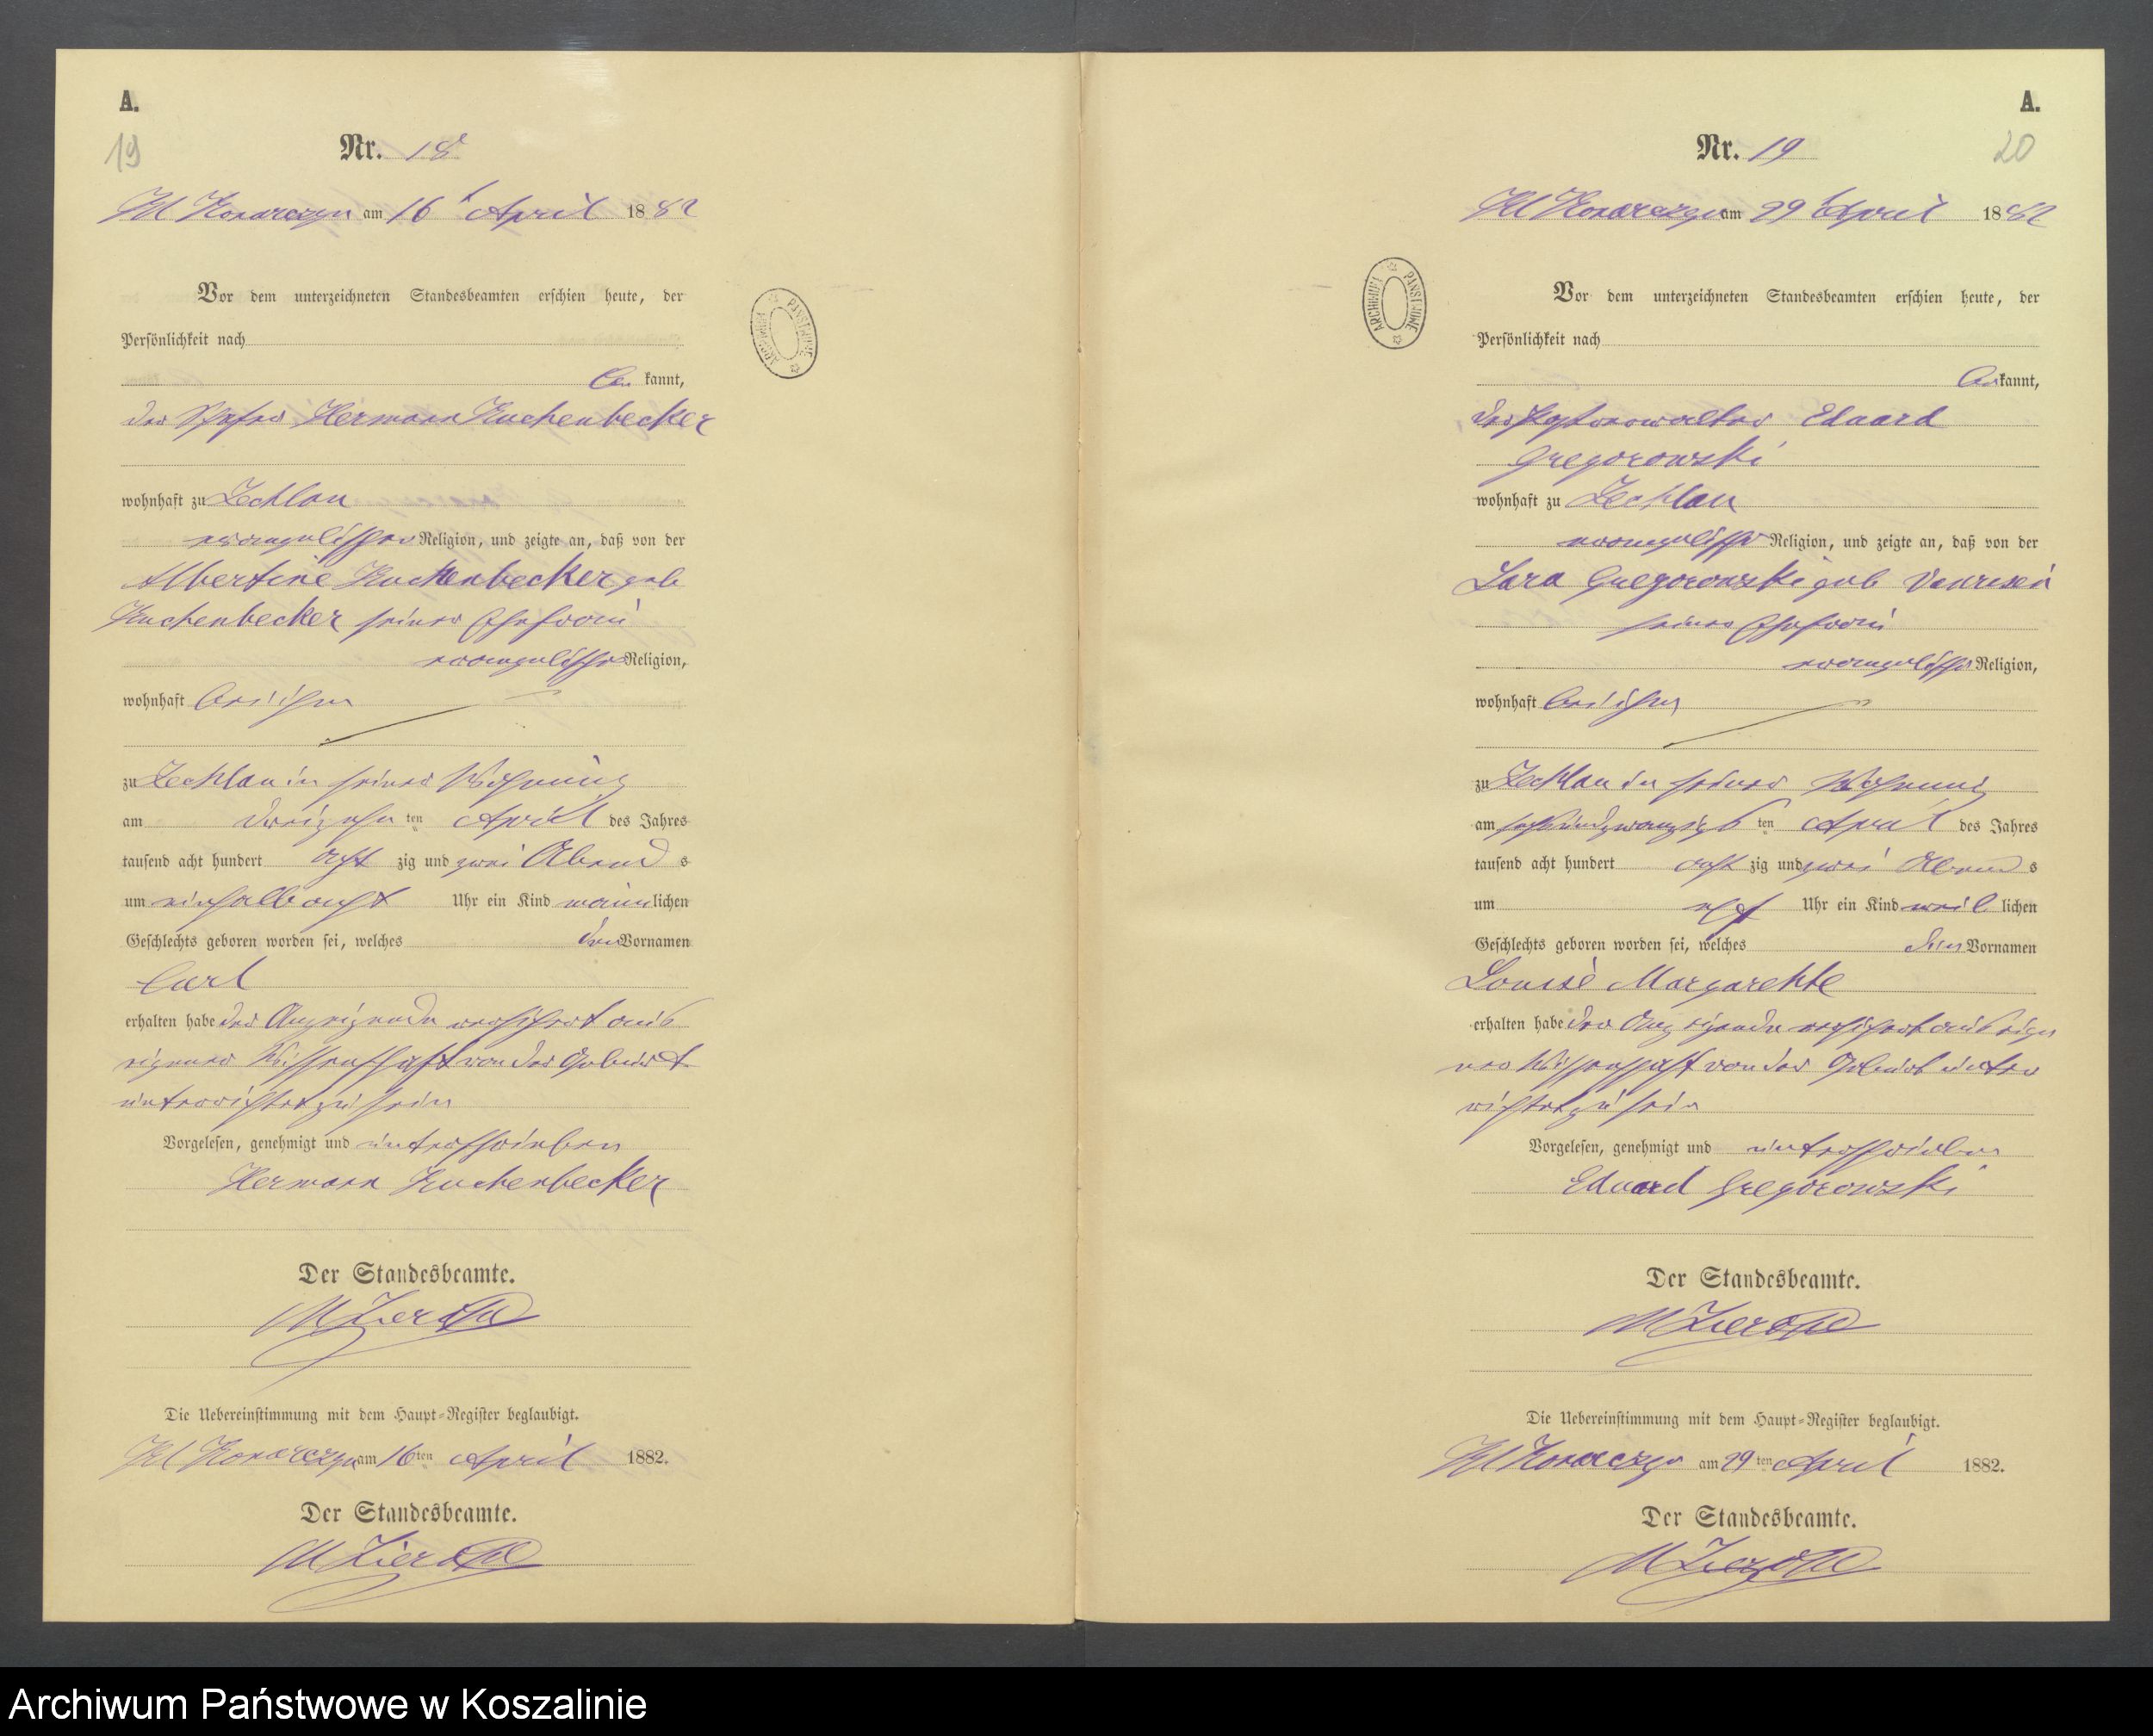 A.
19
Nr. 18
Kl Konarczyn am 16 April 1882
Vor dem unterzeichneten Standesbeamten erschien heute, der
Persönlichkeit nach
be kannt,
der Schäfer Hermann Kuchenbecker
wohnhaft zu Zechlau
evangelischer Religion, und zeigte an, daß von der
Albertine Kuchenbecker geb
Kuchenbecker seiner Ehefrau
evangelischer Religion,
wohnhaft bei ihm
zu Zechlau in seiner Wohnung
am dreizehn ten April des Jahres
tausend acht hundert acht zig und zwei Abend s
um einhalb acht Uhr ein Kind männlichen
Geschlechts geboren worden sei, welches den Vornamen
Carl
erhalten habe der Anzeigende versichert aus
eigener Wissenschaft von der Geburt
unterrichtet zu sein
Vorgelesen, genehmigt und unterschrieben
Hermann Kuchenbecker
Der Standesbeamte.
Die Uebereinstimmung mit dem Haupt-Register beglaubigt.
Kl Konarczyn am 16 ten April 1882.
Der Standesbeamte.
A.
20
Nr. 19
Kl Konarczyn am 29 April 1882
Vor dem unterzeichneten Standesbeamten erschien heute, der
Persönlichkeit nach
be kannt,
der Eduard
Gregorowski
wohnhaft zu Zechlau
evangelischer Religion, und zeigte an, daß von der
Gregorowski geb
seiner Ehefrau
evangelischer Religion,
wohnhaft bei ihm
zu Zechlau in seiner Wohnung
am sechsundzwanzigs ten April des Jahres
tausend acht hundert acht zig und zwei Abend s
um Uhr ein Kind weib lichen
Geschlechts geboren worden sei, welches den Vornamen
Louise Margarehte
erhalten habe der Anzeigende versichert aus eige
ner Wissenschaft von der Geburt unter
richtet zu sein
Vorgelesen, genehmigt und unterschrieben
Eduard Gregorowski
Der Standesbeamte.
Die Uebereinstimmung mit dem Haupt-Register beglaubigt.
Kl Konarczyn am 29 ten April 1882.
Der Standesbeamte.
ARCHIWUM PAŃSTWOWE
ARCHIWUM PAŃSTWOWE
Archiwum Państwowe w Koszalinie